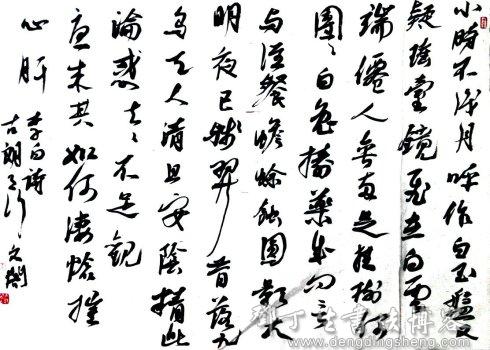 小时不识月呼作白玉盘又
疑瑶台镜飞在白云
端仙人垂两足桂树何
团团白兔捣药成问言
与谁餐蟾蜍蚀圆影大
明夜已残羿昔落九
乌天人清且安阴精此
沦惑去去不足观
忧来其如何凄怆摧
心肝
李白诗
古朗月行
邓丁生书法博客
www.dengdingsheng.com